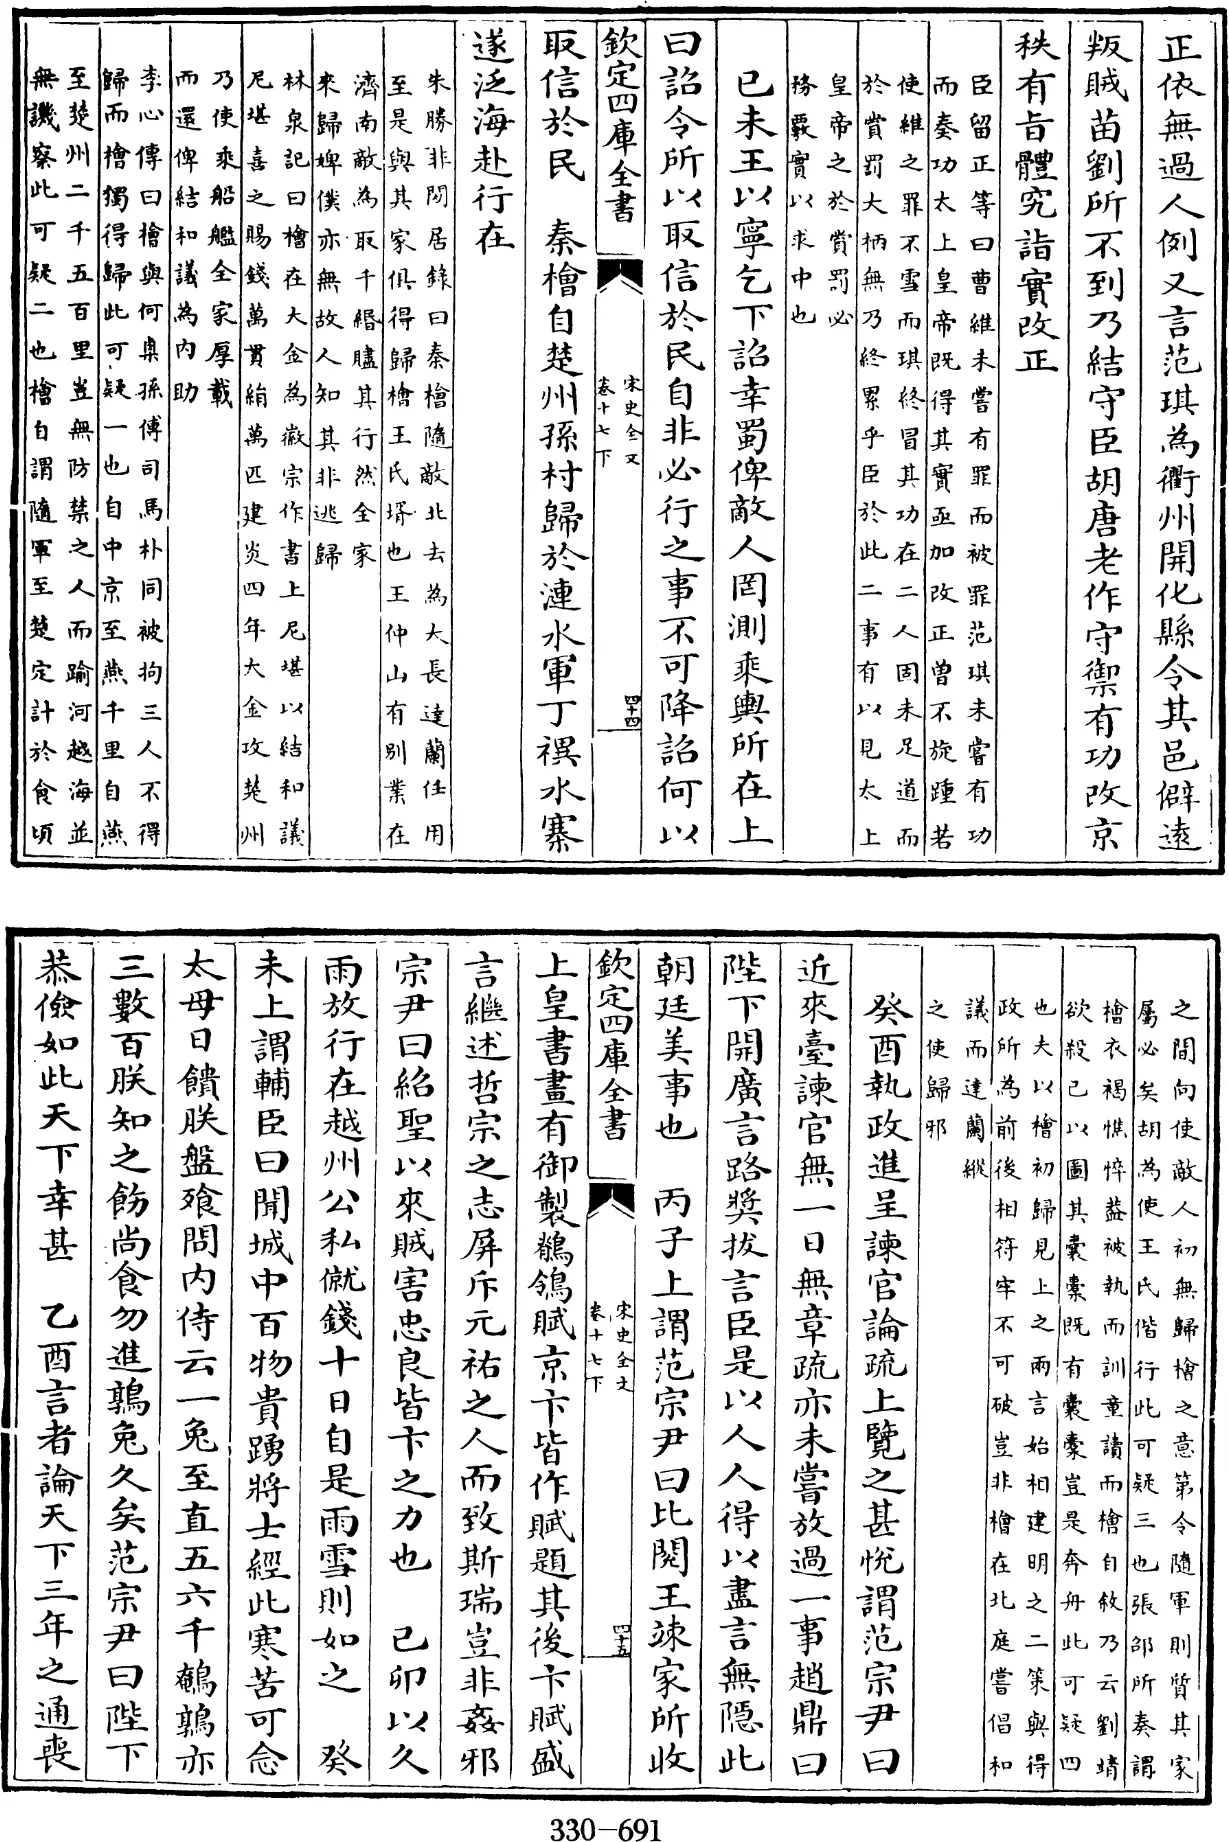 正依無過人例又言范琪為衢州開化縣令其邑僻遠
叛賊苗劉所不到乃結守臣胡唐老作守禦有功改京
秩有旨體究詣實改正
臣留正等曰曹維未嘗有罪而被罪范琪未嘗有功
而奏功太上皇帝既得其實亟加改正曾不旋踵若
使維之罪不雪而琪終冒其功在二人固未足道而
於賞罰大柄無乃終累乎臣於此二事有以見太上
皇帝之於賞罰必
務覈實以求中也
已未王以寧乞下詔幸蜀俾敵人罔測乘輿所在上
曰詔令所以取信於民自非必行之事不可降詔何以
欽定四庫全書
宋史全文
卷十七下
四十四
取信於民　秦檜自楚州孫村歸於漣水軍丁禩水寨
遂泛海赴行在
朱勝非閒居錄曰秦檜隨敵北去為大長達蘭任用
至是與其家俱得歸檜王氏壻也王仲山有別業在
濟南敵為取千緡贐其行然全家
來歸婢僕亦無故人知其非逃歸
林泉記曰檜在大金為徽宗作書上尼堪以結和議
尼堪喜之賜錢萬貫絹萬匹建炎四年大金攻楚州
乃使乘船艦全家厚載
而還俾結和議為内助
李心傳曰檜與何㮚孫傅司馬朴同被拘三人不得
歸而檜獨得歸此可疑一也自中京至燕千里自燕
至楚州二千五百里豈無防禁之人而踰河越海並
無譏察此可疑二也檜自謂隨軍至楚定計於食頃
之間向使敵人初無歸檜之意第令隨軍則質其家
屬必矣胡為使王氏偕行此可疑三也張邵所奏謂
檜衣褐憔悴益被執而訓童讀而檜自敘乃云劉靖
欲殺己以圖其囊橐既有囊橐豈是奔舟此可疑四
也夫以檜初歸見上之兩言始相建明之二策與得
政所為前後相符牢不可破豈非檜在北庭嘗倡和
議而達蘭縱
之使歸邪
癸酉執政進呈諫官論疏上覽之甚悅謂范宗尹曰
近來臺諫官無一日無章疏亦未嘗放過一事趙鼎曰
陛下開廣言路奬拔言臣是以人人得以盡言無隱此
朝廷美事也　丙子上謂范宗尹曰比閱王竦家所收
欽定四庫全書
宋史全文
卷十七下
四十五
上皇書畫有御製鶺鴒賦京卞皆作賦題其後卞賦盛
言繼述哲宗之志屏斥元祐之人而致斯瑞豈非姦邪
宗尹曰紹聖以來賊害忠良皆卞之力也　己卯以久
雨放行在越州公私僦錢十日自是雨雪則如之　癸
未上謂輔臣曰聞城中百物貴踴將士經此寒苦可念
太母日饋朕盤飱問内侍云一兔至直五六千鵪鶉亦
三數百朕知之飭尚食勿進鶉兔久矣范宗尹曰陛下
恭儉如此天下幸甚　乙酉言者論天下三年之通喪
330-691